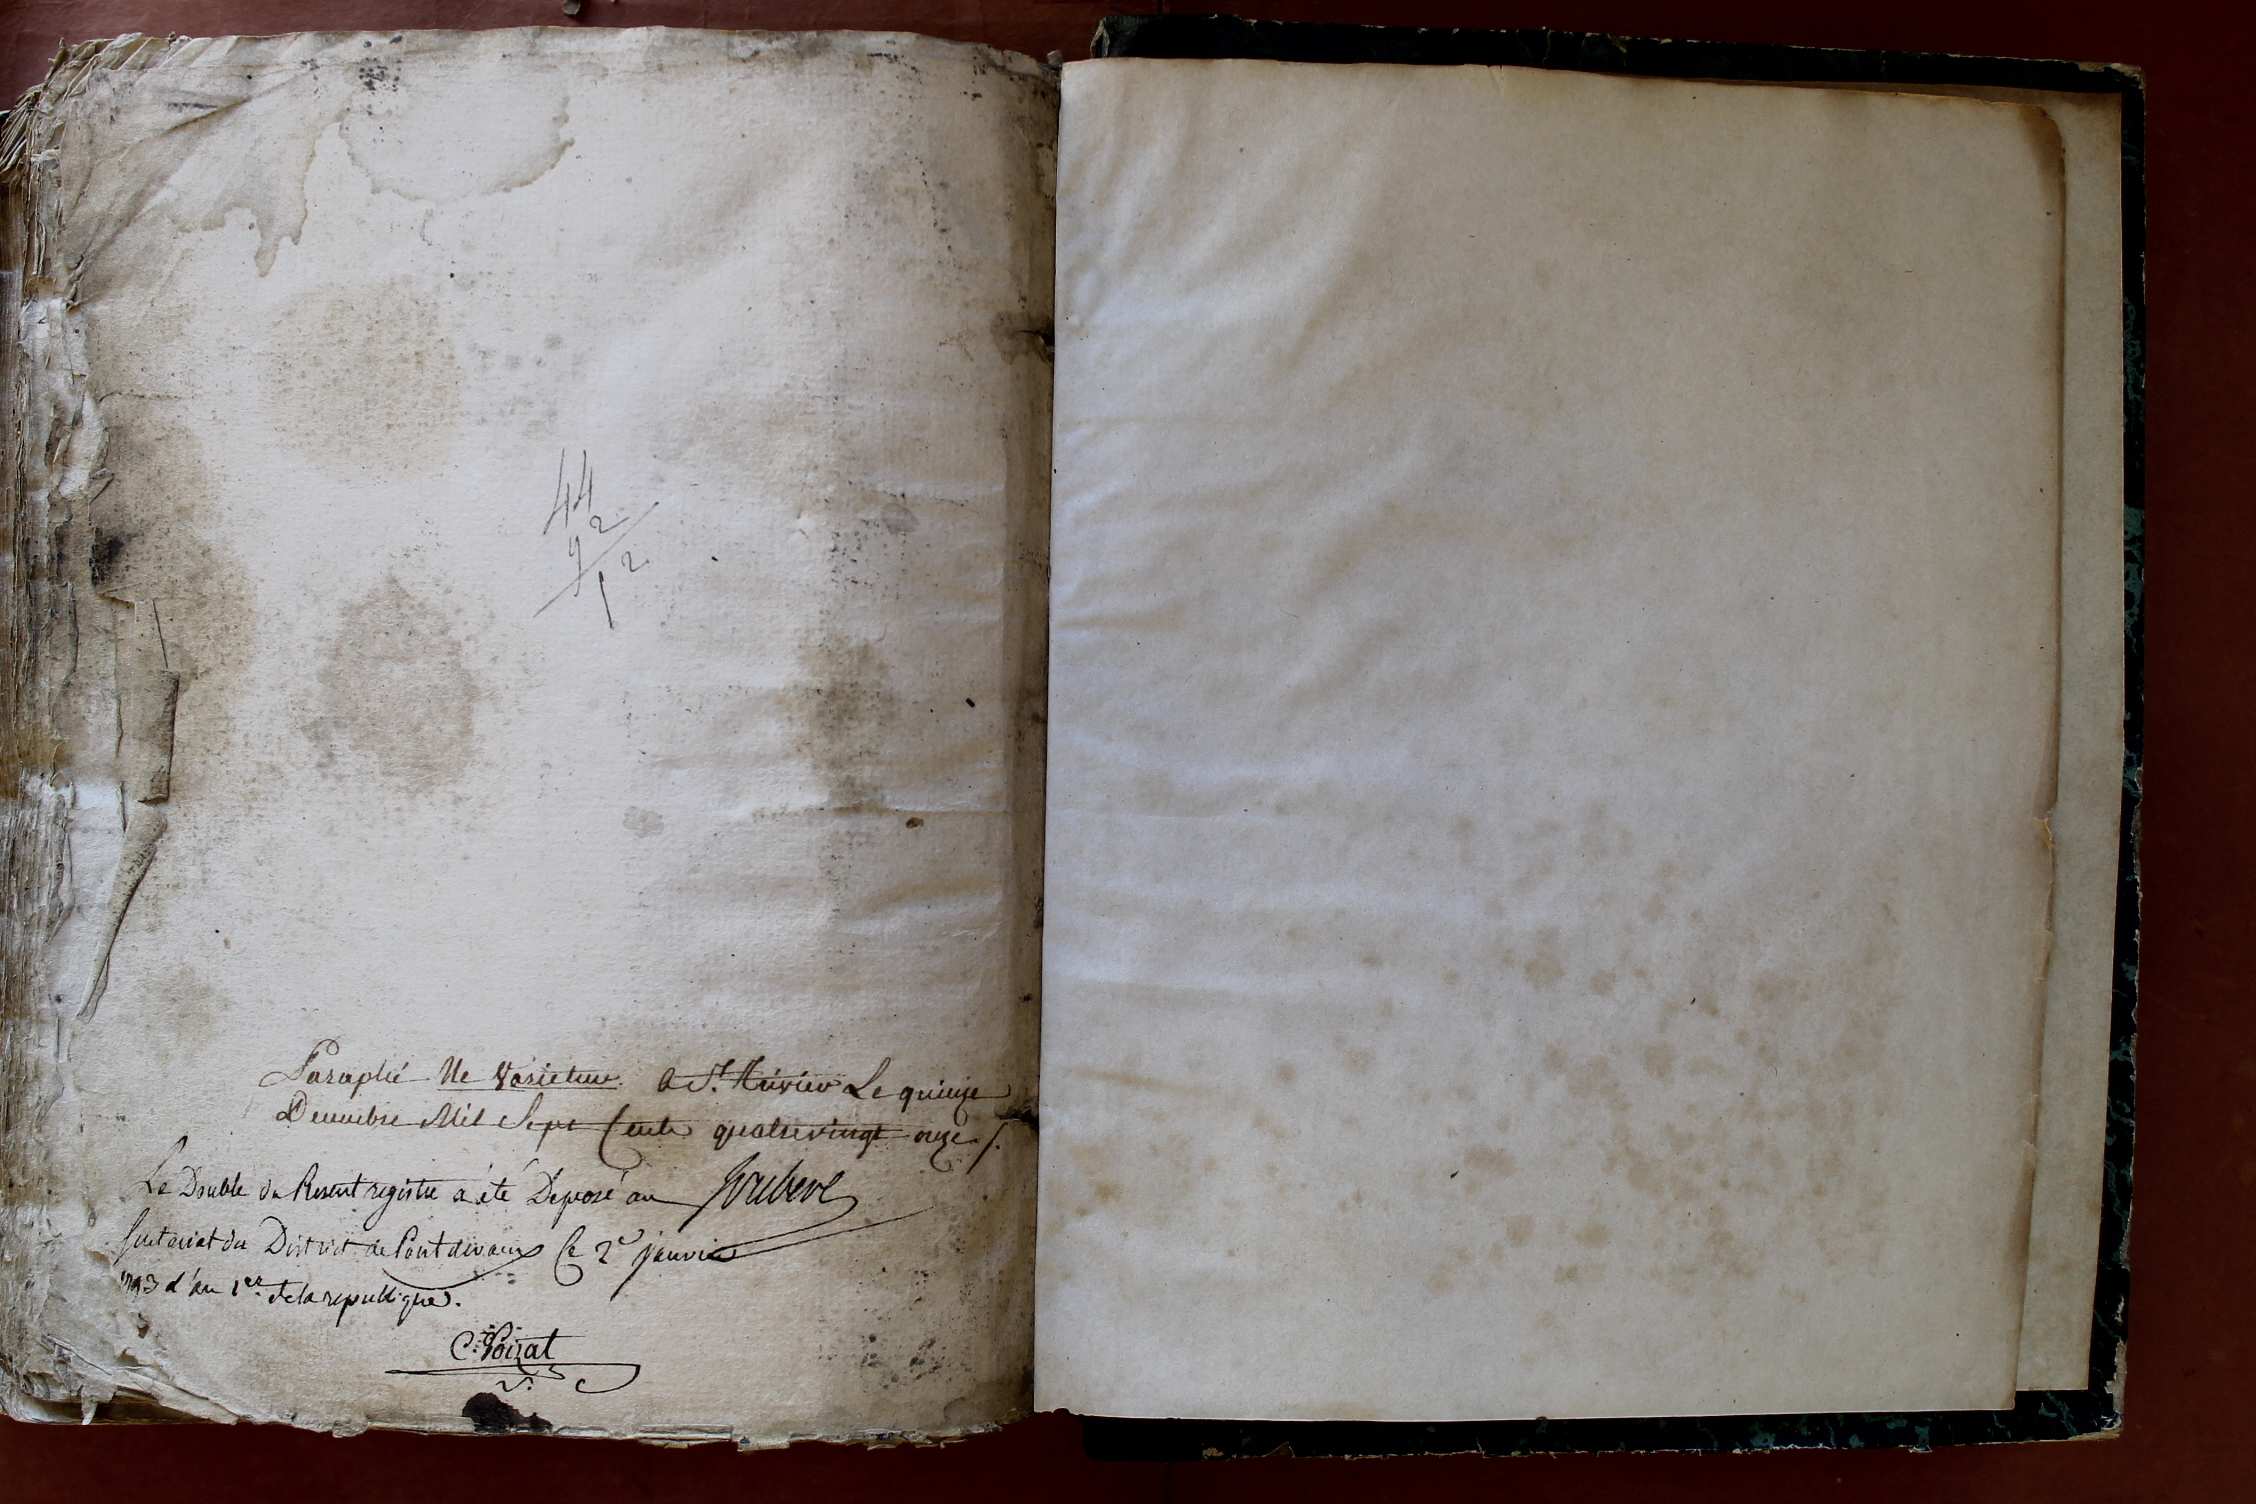 44
92
12
Paraphé Ne Varietur. a St. Trivier Le quinze
Decembre Mil Sept Cents quatrevingt onze ./.
Le Double du Present registre a été Déposé au
Secretariat du District de Pontdevaux Ce 2e janvier
1793 l'an 1er. de la republique.
C. Poizat